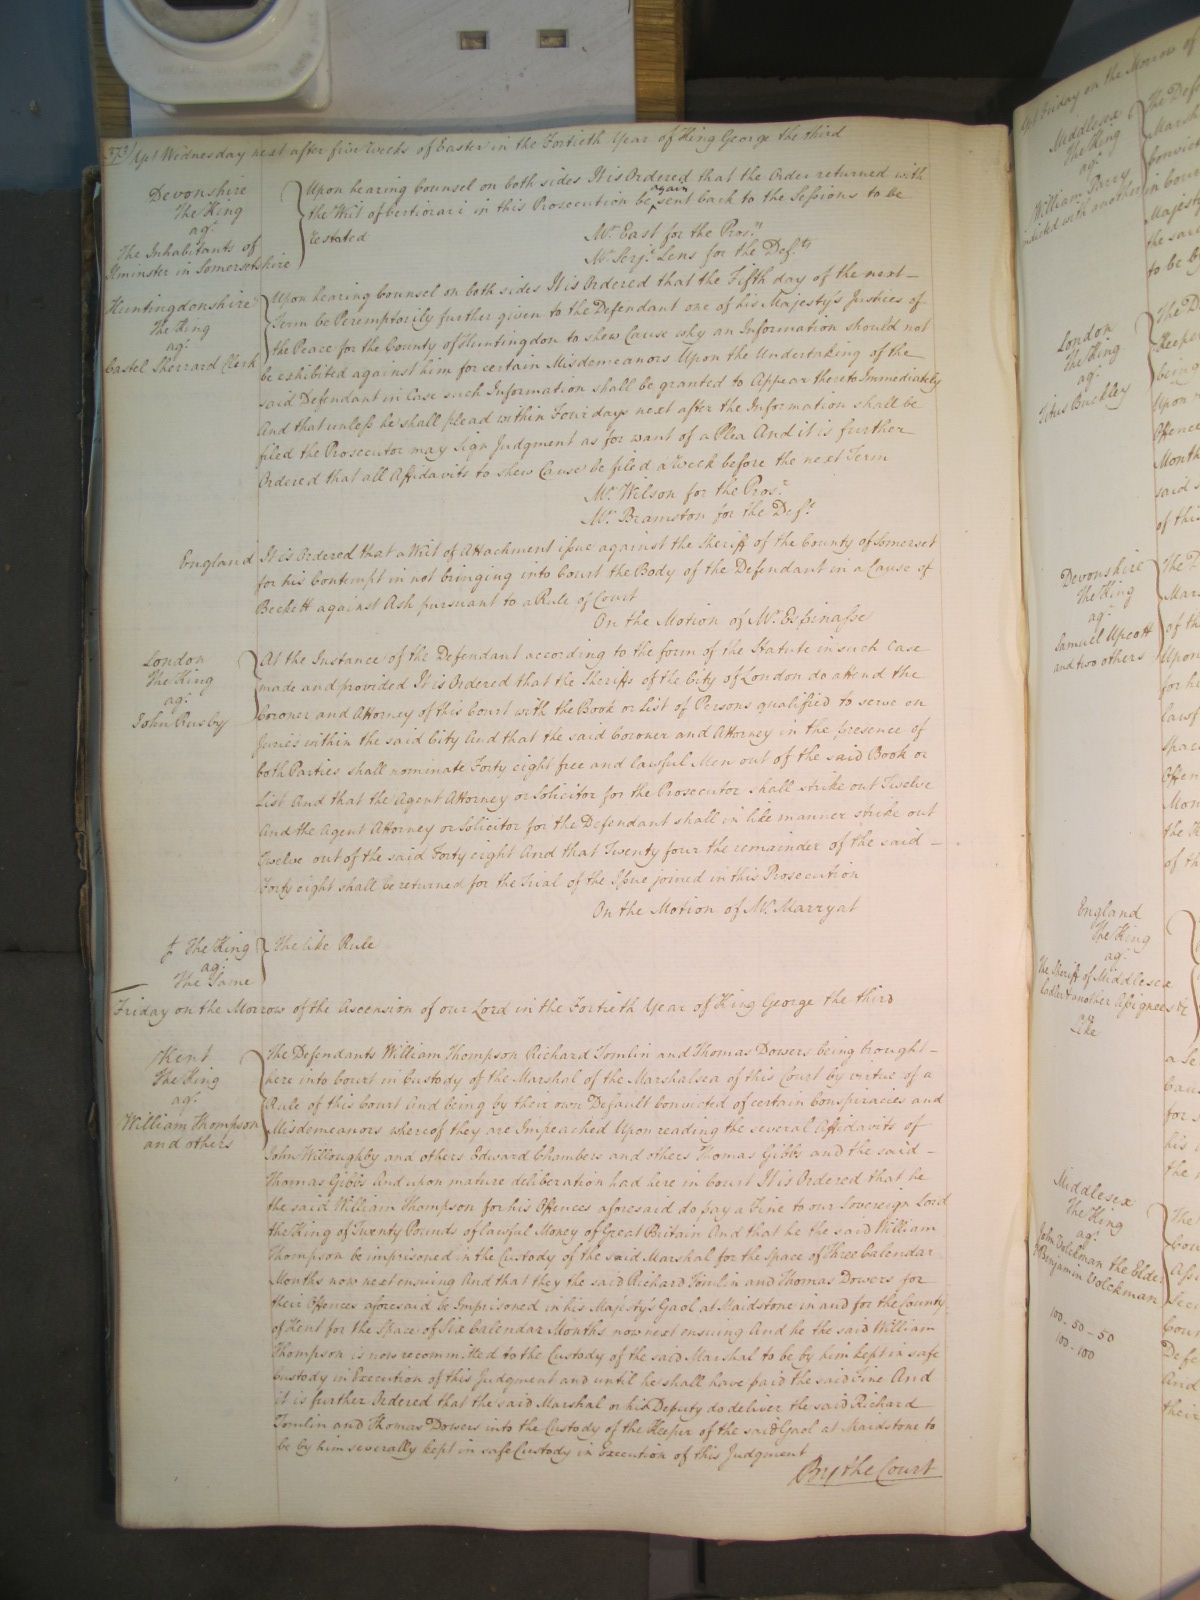 373/ Yet Wednesday next after five Weeks of Easter in the Fortieth Year of King George the third
Devonshire
The King
agt
The Inhabitants of
Ilminster in Somersetshire
Upon hearing Counsel on both sides It is Ordered that the Order returned with
the Writ of Certiorari in this Prosecution be again sent back to the Sessions to be
restated
Mr. East for the Prosr.
Mr. Serjt. Lens for the Defts
Huntingdonshire
The King
agt
Castel Sherrard Clerk
Upon hearing Counsel on both sides It is Ordered that the Fifth day of the next
Term be Peremptorily further given to the Defendant one of his Majesty's Justices of
the Peace for the County of Huntingdon to shew Cause why an Information should not
be exhibited against him for certain Misdemeanors Upon the Undertaking of the
said Defendant in Case such Information shall be granted to Appear thereto Immediately
And that unless he shall plead within Four days next after the Information shall be
filed the Prosecutor may sign Judgment as for want of a Plea And it is further
Ordered that all Affidavits to shew Cause be filed a week before the next Term
Mr. Wilson for the Prosr.
Mr. Bramston for the Deft.
England
It is Ordered that a Writ of Attachment issue against the Sheriff of the County of Somerset
for his Contempt in not bringing into Court the Body of the Defendant in a Cause of
Beckett against Ash pursuant to a Rule of Court
On the Motion of Mr. Espinasse
London
The King
agt
John Rusby
At the Instance of the Defendant according to the form of the Statute in such Case
made and provided It is Ordered that the Sheriffs of the City of London do attend the
Coroner and Attorney of this Court with the Book or List of Persons qualified to serve on
Juries within the said City And that the said Coroner and Attorney in the presence of
both Parties shall nominate Forty eight free and lawful Men out of the said Book or
List And that the Agent Attorney or Solicitor for the Prosecutor shall strike out Twelve
And the Agent Attorney or Solicitor for the Defendant shall in like manner strike out
Twelve out of the said Forty eight And that Twenty four the remainder of the said
Forty eight shall be returned for the Trial of the Issue joined in this Prosecution
On the Motion of Mr. Marryat
The King
agt
The Same
The like Rule
Friday on the Morrow of the Ascension of our Lord in the Fortieth Year of King George the third
Kent
The King
agt
William Thompson
and others
The Defendants William Thompson Richard Tomlin and Thomas Dowers being brought
here into Court in Custody of the Marshal of the Marshalsea of this Court by virtue of a
Rule of this Court And being by their own Default Convicted of certain Conspiracies and
Misdemeanors whereof they are Impeached Upon reading the several Affidavits of
John Willoughby and others Edward Chambers and others Thomas Gibbs and the said
Thomas Gibbs And upon mature deliberation had here in Court It is Ordered that he
the said William Thompson for his Offences aforesaid do pay a Fine to our Sovereign Lord
the King of Twenty Pounds of lawful Money of Great Britain And that he the said William
Thompson be imprisoned in the Custody of the said Marshal for the Space of Three Calendar
Months now next ensuing And that they the said Richard Tomlin and Thomas Dowers for
their Offences aforesaid be Imprisoned in his Majesty's Gaol at Maidstone in and for the County
of Kent for the Space of Six Calendar Months now next ensuing And he the said William
Thompson is now recommitted to the Custody of the said Marshal to be by him kept in safe
Custody in Execution of this Judgment and until he shall have paid the said Fine And
it is further Ordered that the said Marshal or his Deputy do deliver the said Richard
Tomlin and Thomas Dowers into the Custody of the Keeper of the said Gaol at Maidstone to
be by him severally kept in safe Custody in Execution of this Judgment
By the Court
Yet Friday on the Morrow of
Middlesex
The King
agt
William Parry
indicted with another
The Defe
Marsh
convict
in Cour
Majesty
the said
to be by
London
The King
agt
Titus Buckley
The D
Keeper
being
Upon
Offence
Month
said
of this
Devonshire
The King
agt
Samuel Upcott
and two others
The
Mars
of th
Upon
for h
lawf
Space
Offen
Mon
the
of th
England
The King
agt
The Sheriff of Middlesex
Like
a Se
Caus
for
his
the
Middlesex
The King
agt
John Volckman the Elder
Benjamin Volckman
100-50-50
100-100
The
Cou
Affi
Secu
Cour
Defe
And
their